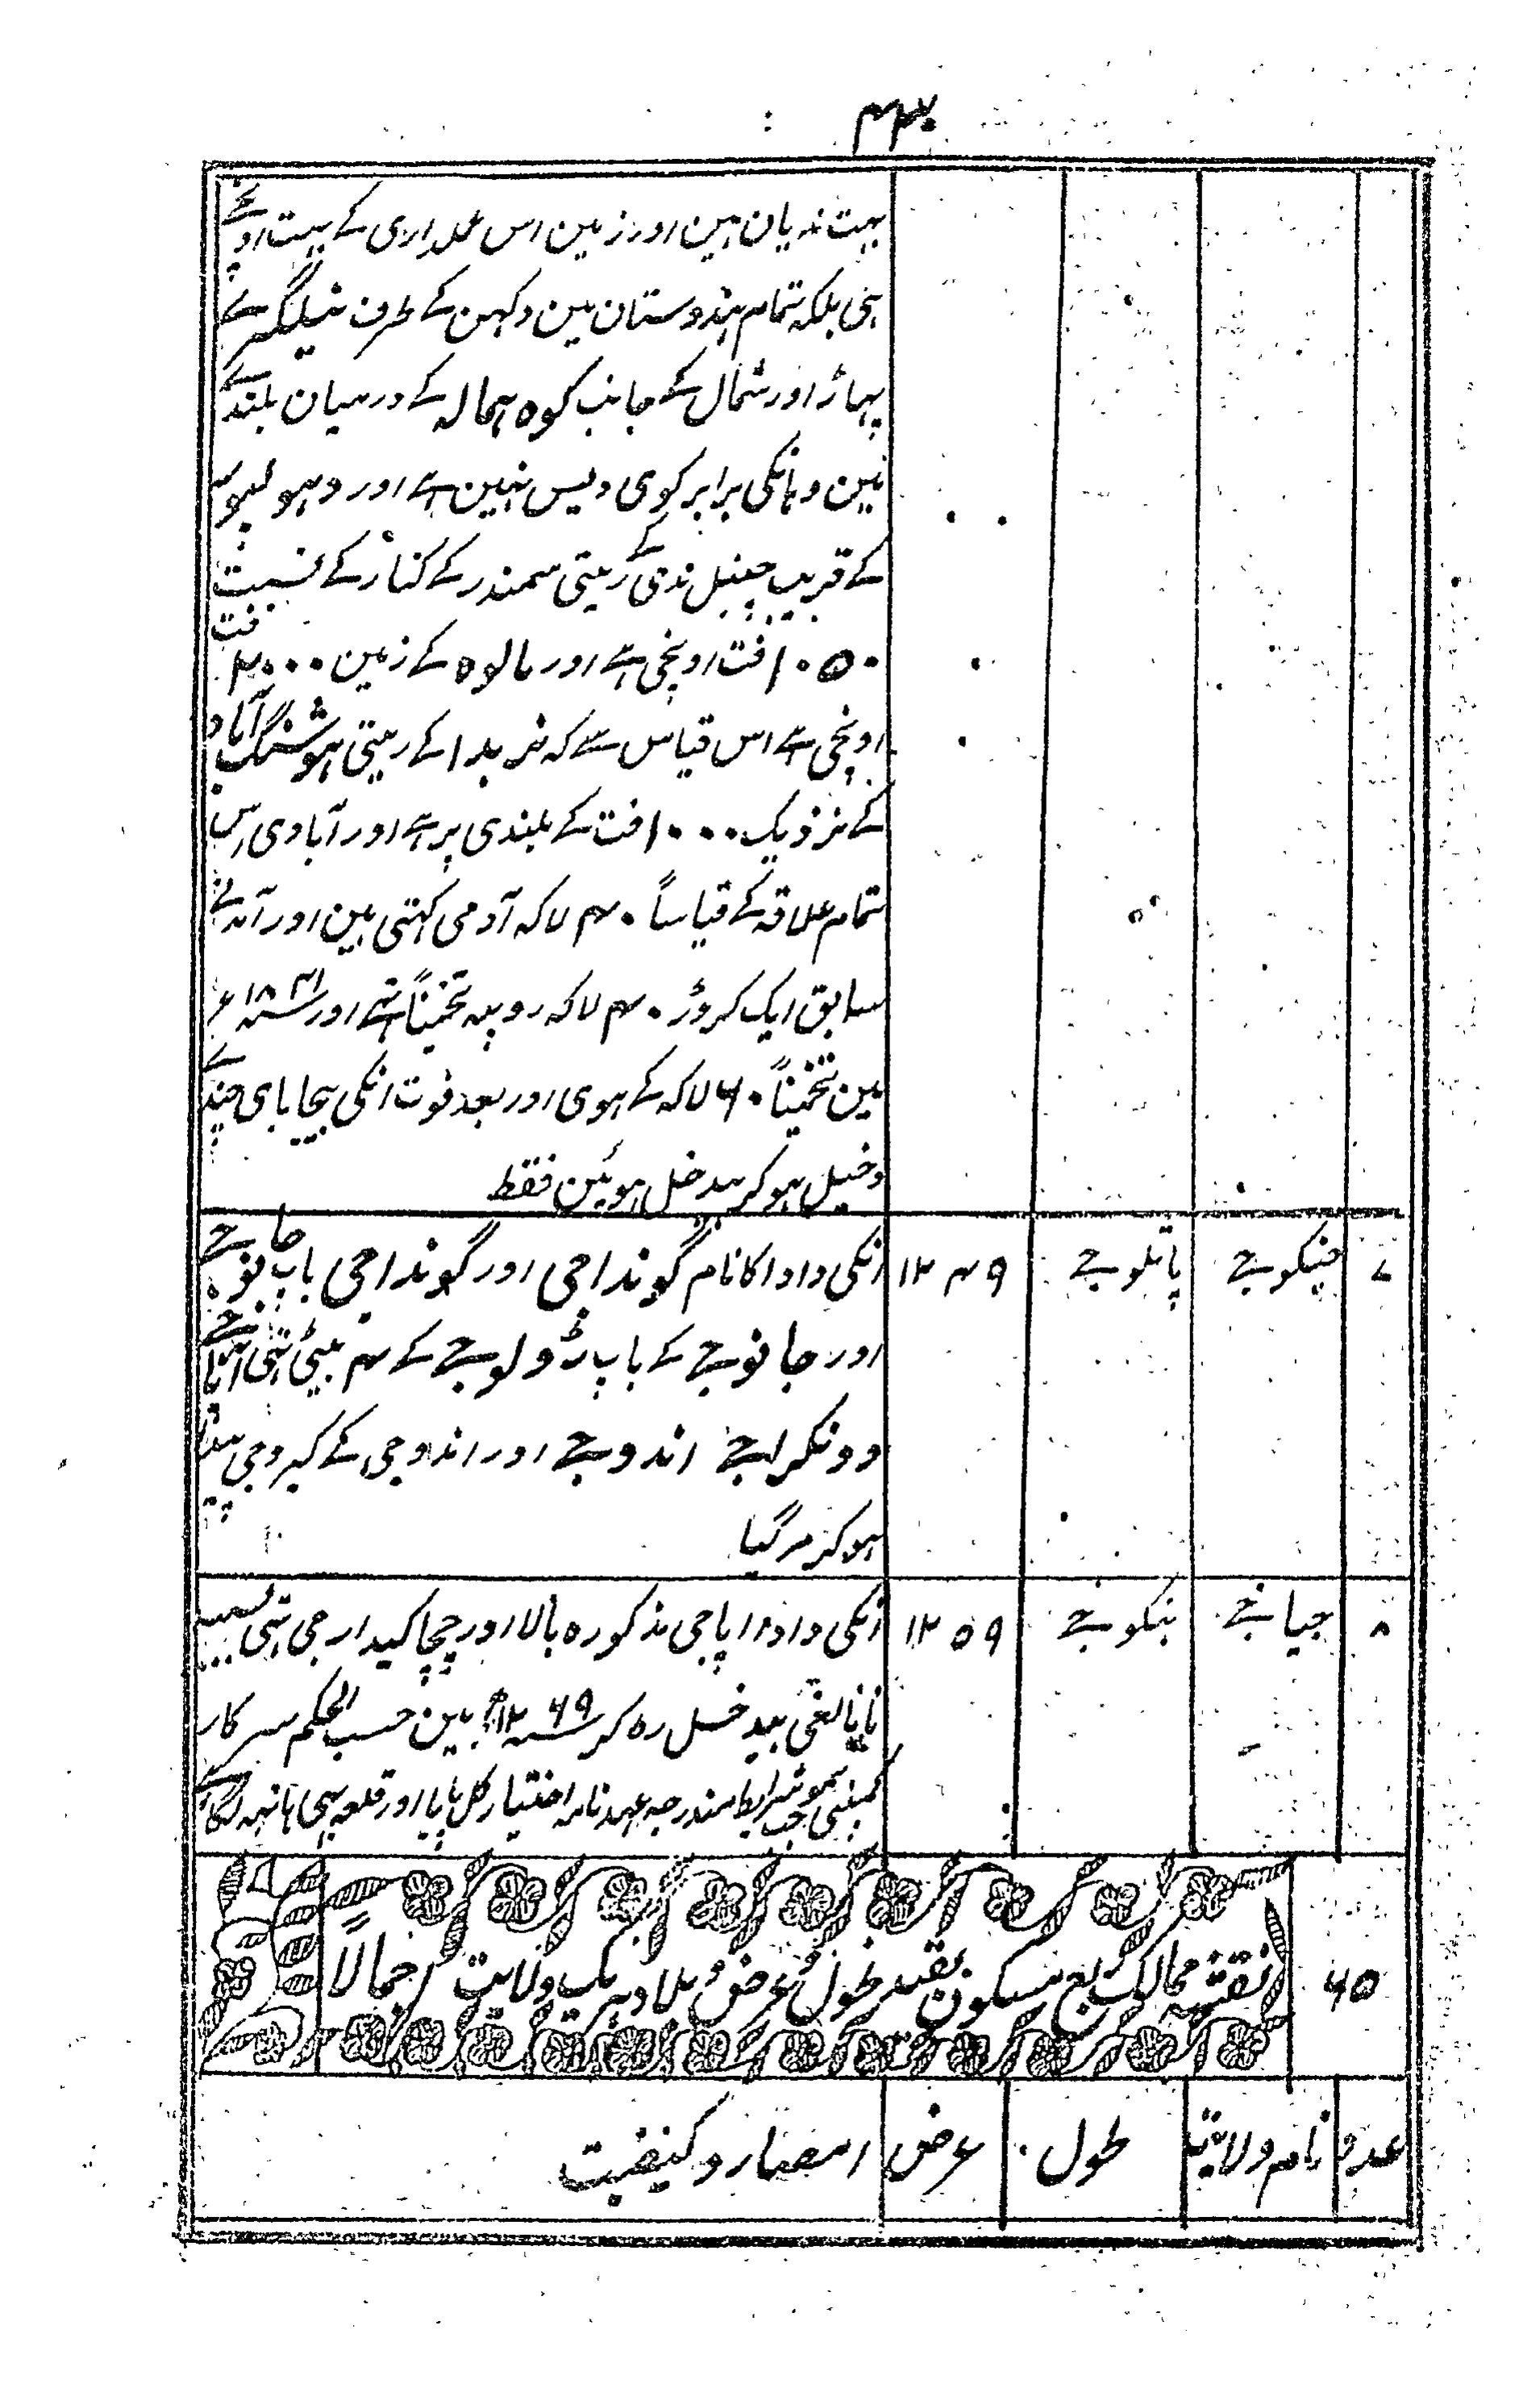 بہت ندیان ہین اور زمین اس عملداری کے بہت اونچے
ہی بلکہ تمام ہندوستان مین دکہن کے طرف نیلگری کے
پہاڑ اور شمال کے جانب کوہ ہمالہ کے درمیان بلندے
مین وہانکی برابر کوی دیس نہین ہے اور دہولپور
کے قریب چنبل ندی کے ریتی سمندر کے کنارے کے نسبت
۱۰۵۰ فت اونچی ہے اور مالوہ کے زمین ۲۰۰۰ فت
اونچی ہے اس قیاس سے کہ نربدا کے ریتی ہوشنگ آباد
کے نزدیک ۱۰۰۰ فت کے بلندی پر ہے اور آبادی اس
تمام علاقہ کے قیاساً ۴۰ لاکہ آدمی کہتی ہین اور آمدنے
سابق ایک کروڑ ۴۰ لاکہ روپیہ تخمیناً تہے اور سنہ ۱۸۲۱ ء
مین تخمیناً ۶۰ لاکہ کے ہوی اور بعد فوت انکی بیجا بای چندے
دخیل ہوکر بیدخل ہوئین فقط
۷ جنکوجے پاتلوجے ۱۲۴۹ انکی دادا کا نام گونداجی اور گونداجی باپ جانوجے
اور جانوجے کے باپ رڈولوجے کے ۴ بیٹی تہی
دونکراجے اندوجے اور اندوجی کے کیروجی
ہوکر مرگیا
۸ جیاجے بنکوجے ۱۲۵۹ انکی دادا اپاجی مذکورہ بالا اور چچا کیدارجی تہی
تا نابالغی بیدخل رہ کر سنہ ۱۲۶۹ مین حسب الحکم سرکار
کمپنی بموجب شرایط مندرجہ عہدنامہ اختیار کل پایا اور قلعہ بہی ہاتہہ لگا
۶۵ نقشہ ممالک ربع مسکون بقید طول و عرض و بلاد ہر یک ولایت اجمالاً
عدد نام ولایت طول عرض امصار و کیفیت